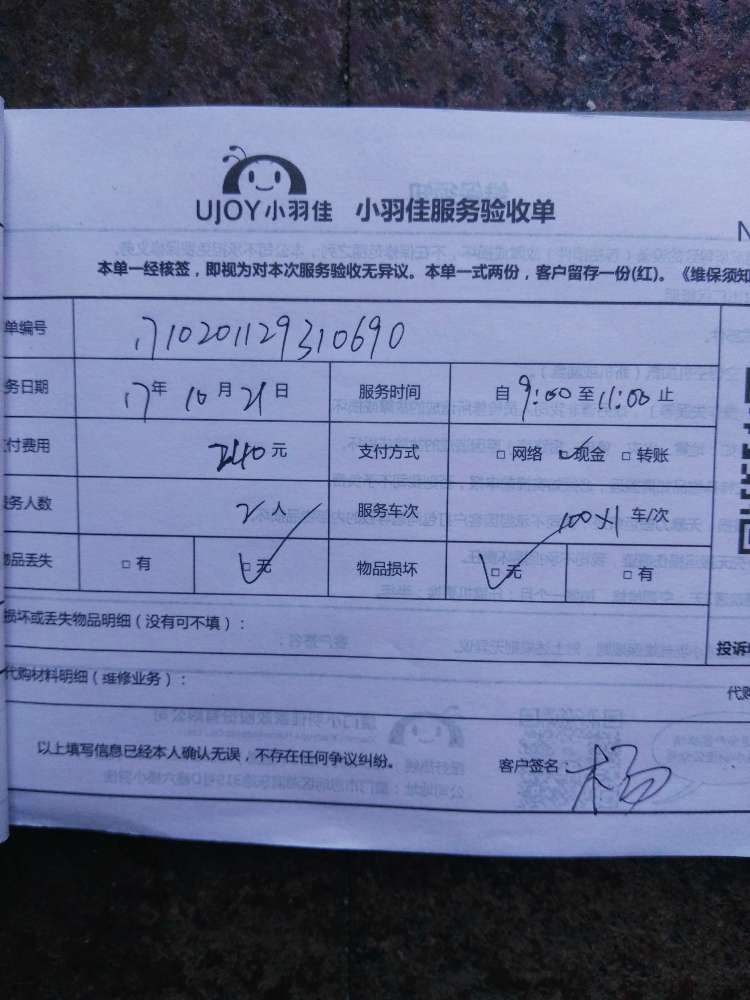 UJOY小羽佳 小羽佳服务验收单
N
本单一经核签，即视为对本次服务验收无异议。本单一式两份，客户留存一份(红)。《维保须知
单编号 1710201129310690
务日期 17年 10月 21日 服务时间 自 9:00 至 11:00 止
付费用 240 元 支付方式 □ 网络 □ 现金 □ 转账
务人数 2 人 服务车次 100×1 车/次
物品丢失 □ 有 □ 无 物品损坏 □ 无 □ 有
损坏或丢失物品明细（没有可不填）：
投诉
代购材料明细（维修业务）：
代购
以上填写信息已经本人确认无误，不存在任何争议纠纷。 客户签名 杨